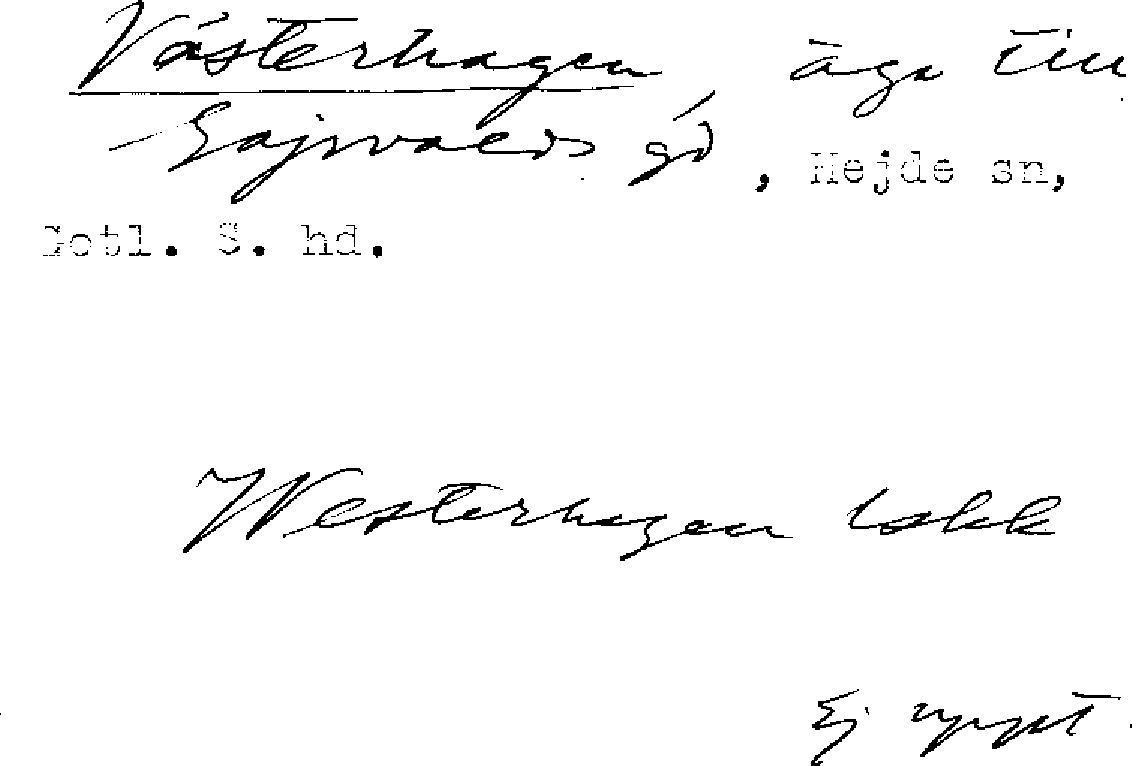 Västerhagen, äga till
Gajrvalds gd, Hejde sn,
Gotl. S. hd.
Westerhagen lskk
Ej uppt.